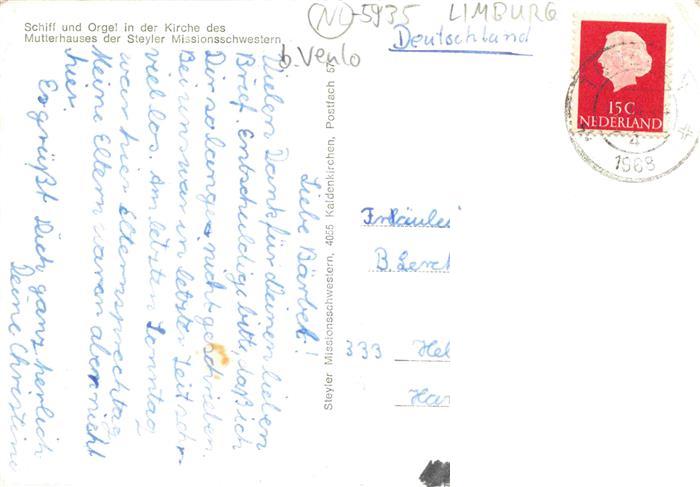 Schiff und Orgel in der Kirche des
Mutterhauses der Steyler Missionsschwestern
NL-5935 LIMBURG
b. Venlo
Deutschland
15C
NEDERLAND
4
1968
Liebe Bärbel!
Vielen Dank für deinen lieben
Brief. Entschuldige bitte, daß ich
Dir so lange nicht geschrieben.
Bei uns war in letzter Zeit sehr
viel los. Am letzten Sonntag
war hier Elternsprechtag
Meine Eltern waren aber nicht
hier.
Es grüßt Dich ganz herlich
Deine Christine
Steyler Missionsschwestern, 4055 Kaldenkirchen, Postfach 57
Fräulei
B. Lerch
333 Hel
Har